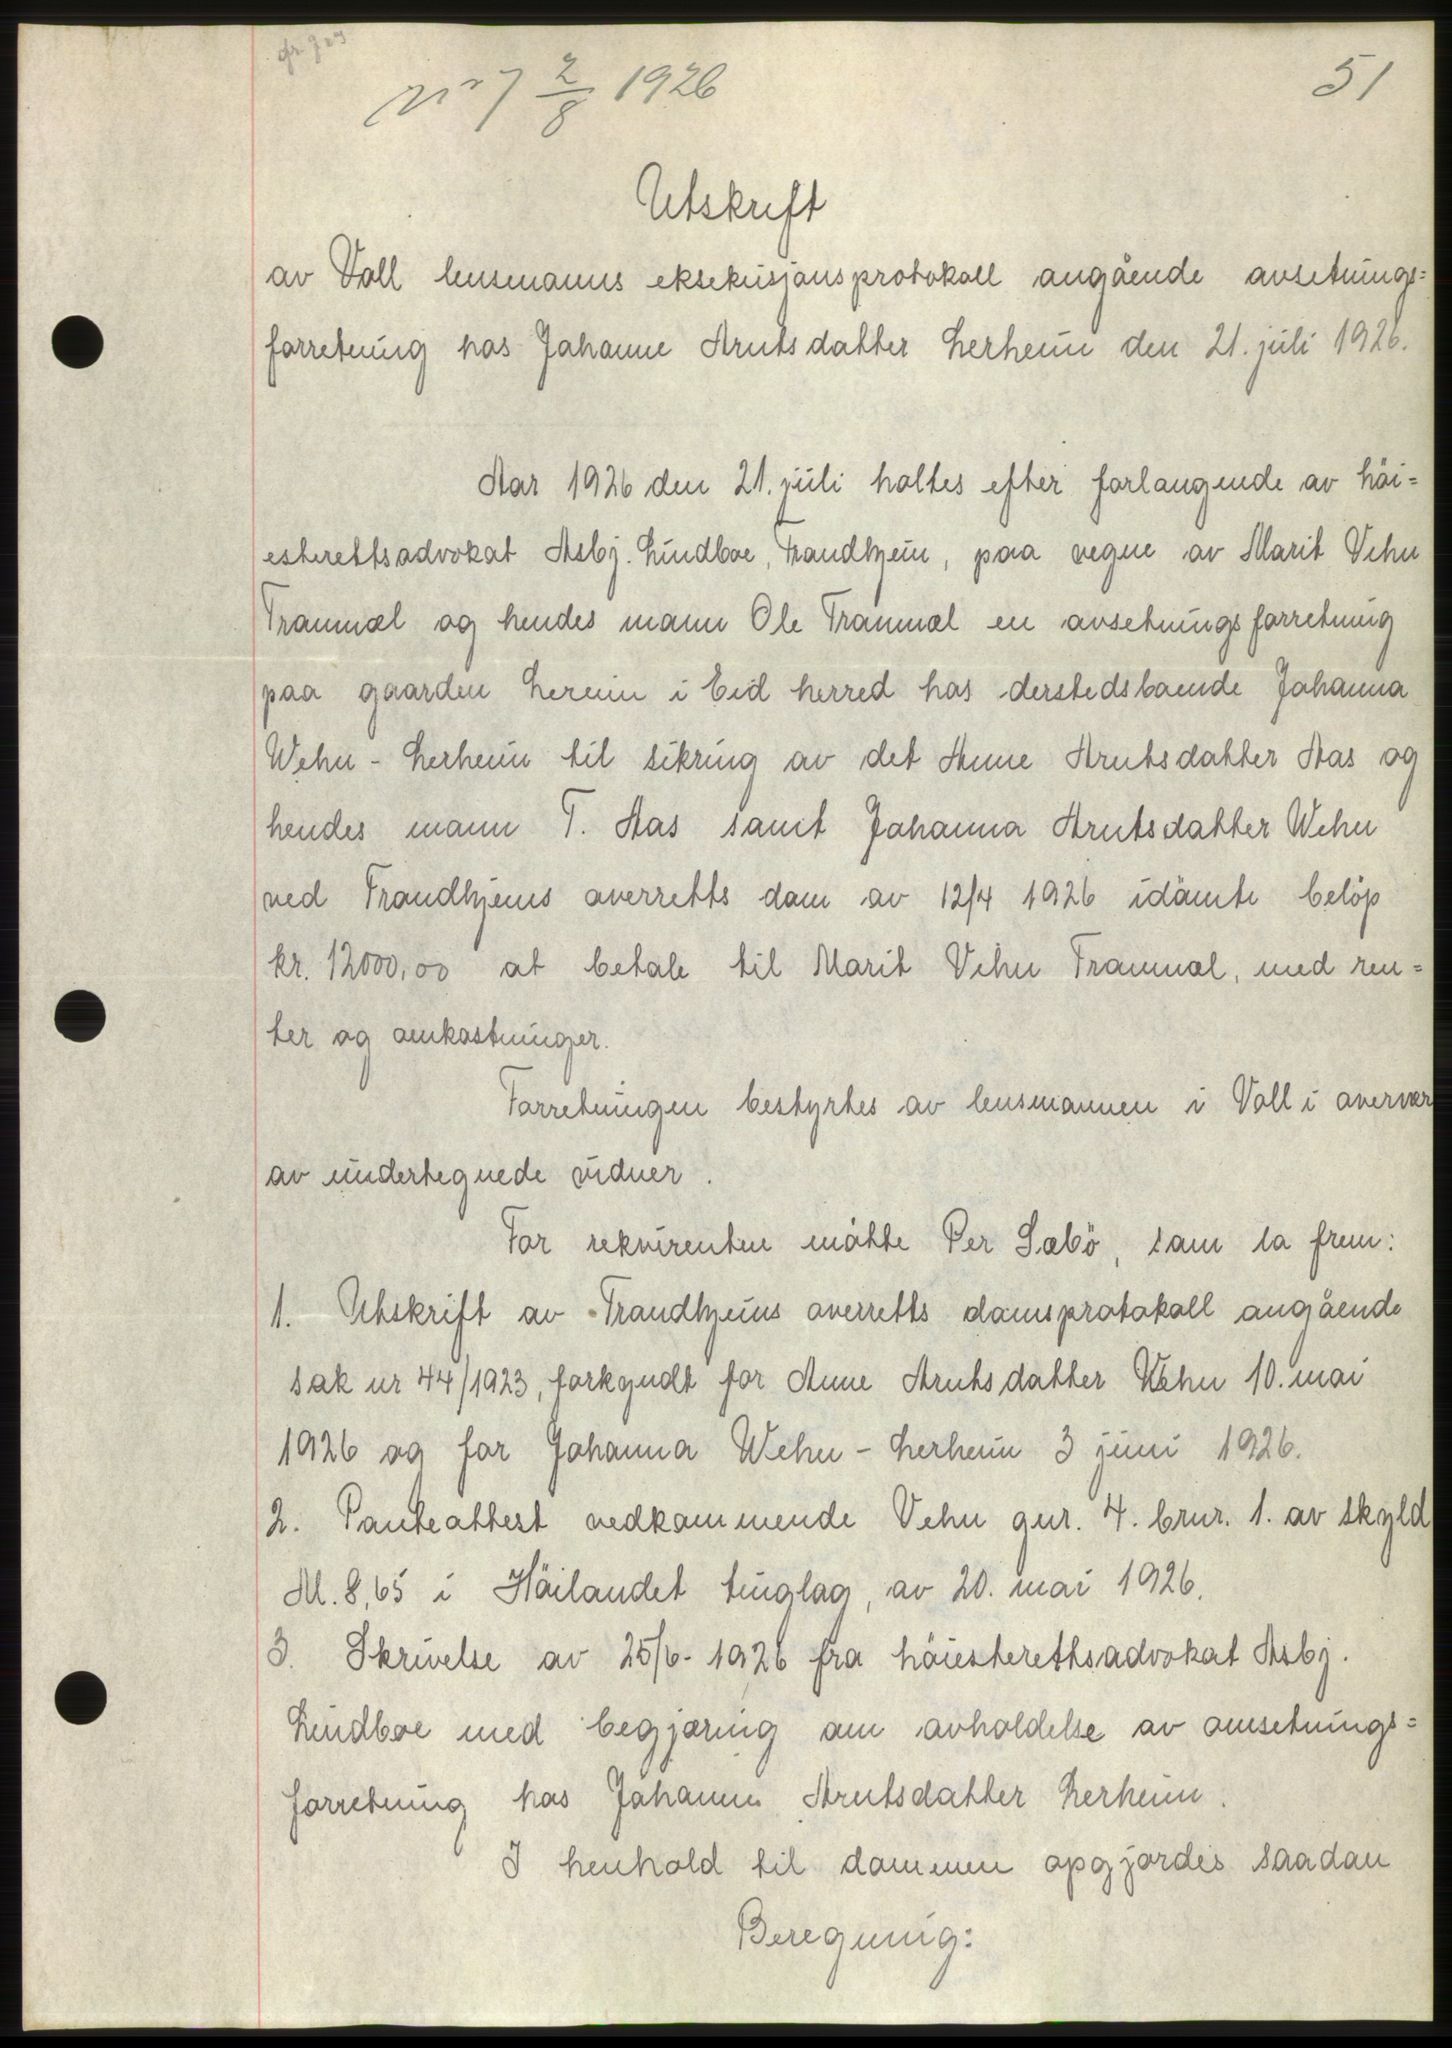 nr 7 2/8 1926
51
Utskrift
av Voll lensmanns eksekusjonsprotokoll angående avsetnings=
forretning hos Johanne Arntsdatter Lerheim den 21. juli 1926.
Aar 1926 den 21. juli holtes efter forlangende av höi=
esterettsadvokat Asbj. Lindboe, Trondhjem, paa vegne av Marit Vehn
Tranmæl og hendes mann Ole Tranmæl en avsetningsforretning
paa gaarden Lereim i Eid herred hos derstedsboende Johanna
Wehn - Lerheim til sikring av det Anne Arntsdatter Aas og
hendes mann T. Aas samt Johanna Arntsdatter Wehn
ved Trondhjems overretts dom av 12/4 1926 idömte belöp
kr. 12000,00 at betale til Marit Vehn Tranmæl, med ren=
ter og omkostninger.
Forretningen bestyrtes av lensmannen i Voll i overvær
av undertegnede vidner.
For rekvirenten mötte Per Sæbö, som la frem:
1. Utskrift av Trondhjems overretts domsprotokoll angående
sak nr 44/1923, forkyndt for Anne Arntsdatter Wehn 10. mai
1926 og for Johanna Wehn - Lerheim 3 juni 1926.
2. Panteattest vedkommende Vehn gnr. 4. brnr. 1. av skyld
M. 8,65 i Höilandet tinglag, av 20. mai 1926.
3. Skrivelse av 25/6- 1926 fra höiesterettsadvokat Asbj.
Lindboe med begjæring om avholdelse av omsetnings=
forretning hos Johanne Arntsdatter Lerheim.
I henhold til dommen opgjordes saadan
Beregning: